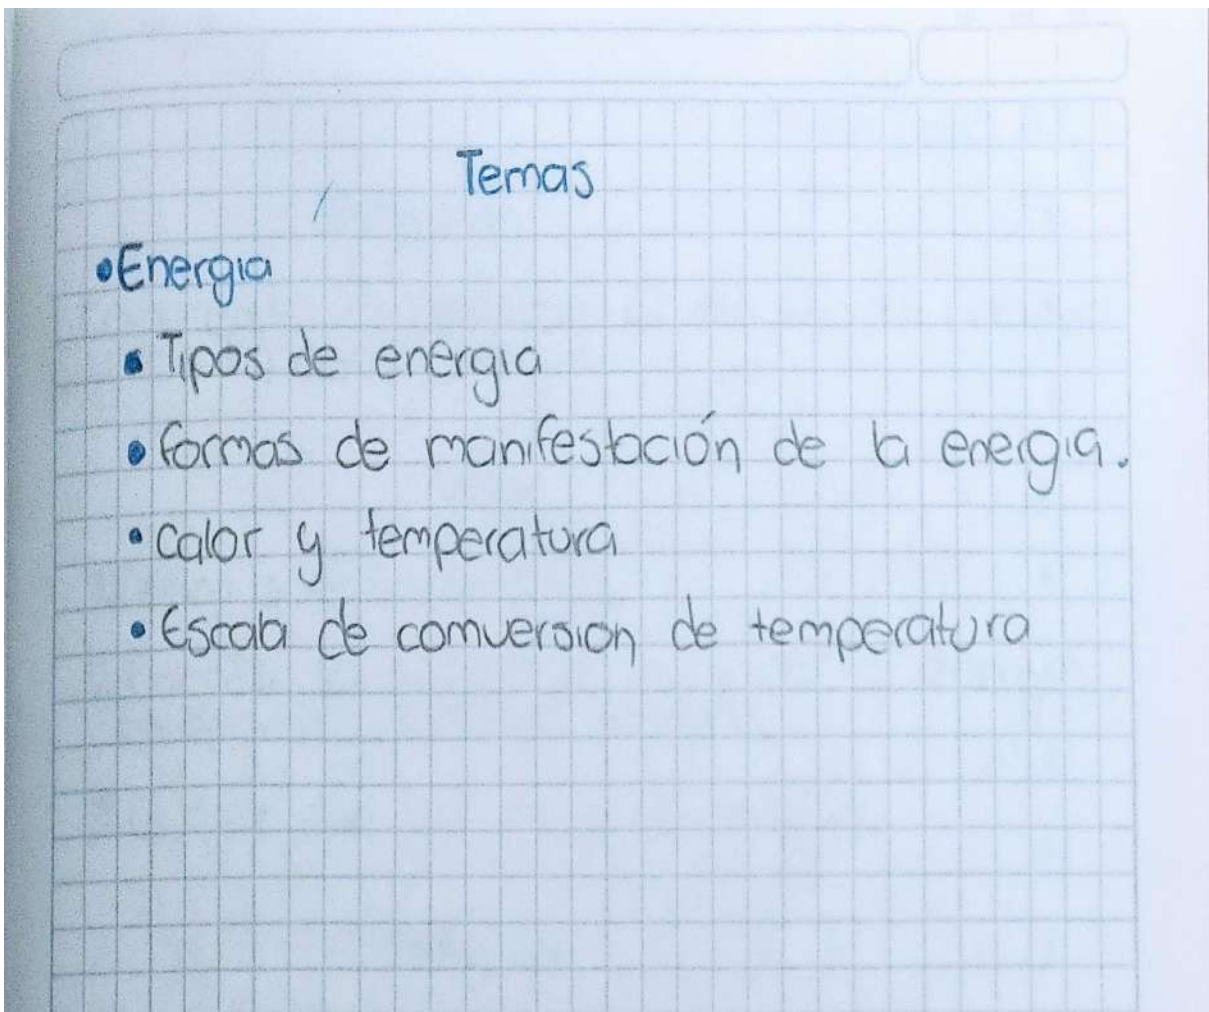 Temas
•Energia
• Tipos de energia
• formas de manifestación de la energia.
• calor y temperatura
• Escala de comversion de temperatura